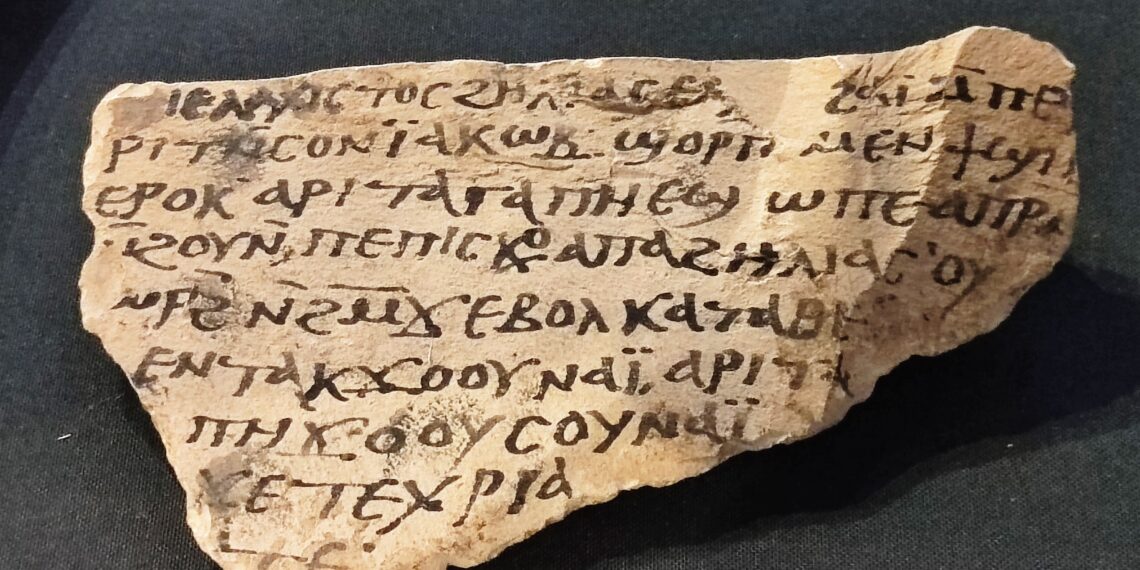 ⲓⲉⲗⲁⲭⲓⲥⲧⲟⲥ ϩⲏⲗⲓⲁⲥ ⲙ̄ⲡⲉ
ⲣⲓⲧ ⲛ̄ⲥⲟⲛ ⲓ̈ⲁⲕⲱⲃ ϣⲟⲣⲡ ⲙⲉⲛ ϯϣⲓⲛ
ⲉⲣⲟⲕ ⲁⲣⲓ ⲧⲁⲅⲁⲡⲏ ⲉϣⲱⲡⲉ ⲁⲡⲣⲁ
ϩⲟⲩⲛ ⲡⲉⲡⲓⲥⲕⲟ ⲁⲡⲁ ϩⲏⲗⲓⲁⲥ ⲟⲩ
ⲛ̄ϩⲙ̄ϫ ⲉⲃⲟⲗ ⲕⲁⲧⲁ ⲑⲉ
ⲉⲛⲧⲁⲕϫⲟⲟⲩ ⲛⲁⲓ̈ ⲁⲣⲓ ⲧⲁ
ⲡⲏ ϫⲟⲟⲩⲥⲟⲩ ⲛⲁⲓ̈
ϫⲉ ⲧⲉⲭⲣⲓⲁ